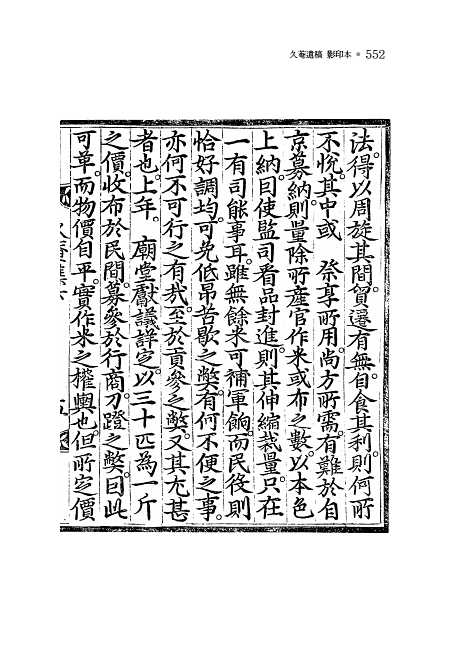 久菴遺稿 影印本 ● 552
法。得以周旋其間。貿遷有無。自食其利。則何所
不悅。其中或 祭享所用。尚方所需。有難於自
京募納。則量除所產官作米或布之數。以本色
上納。曰使監司看品封進。則其伸縮裁量。只在
一有司能事耳。雖無餘米可補軍餉。而民役則
恰好調均。可免低昂苦歇之弊。有何不便之事。
亦何不可行之有哉。至於貢參之弊。又其尤甚
者也。上年。 廟堂獻議詳定。以三十匹為一斤
之價。收布於民間。募參於行商。刀蹬之弊。因此
可革。而物價自平。實作米之權輿也。但所定價